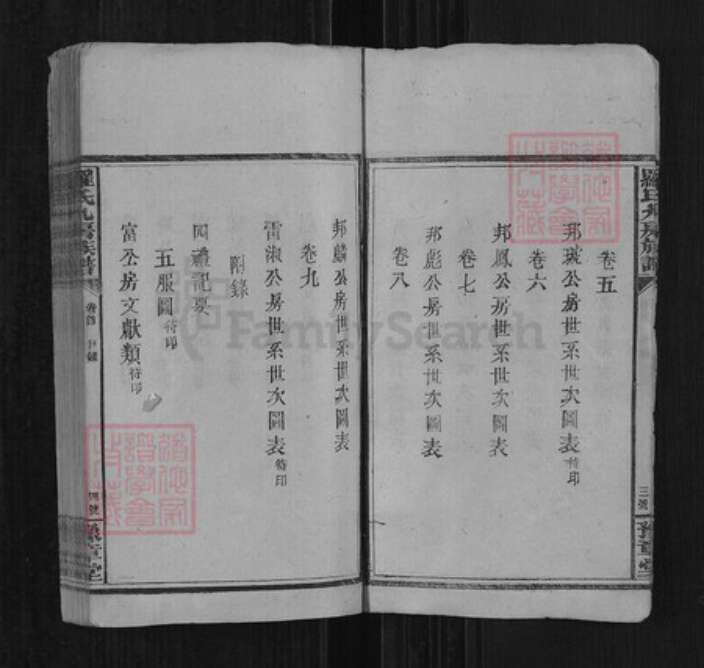 羅氏九房族譜
三號
卷五
邦珹公房世系世次圖表 待印
卷六
邦鳳公房世系世次圖表
卷七
邦彪公房世系世次圖表
卷八
邦麟公房世系世次圖表
卷九
雷淑公房世系世次圖表 待印
附錄
四禮記要
五服圖 待印
富公房文獻類 待印
羅氏九房族譜
卷首 目錄
四號
豫章堂
FamilySearch